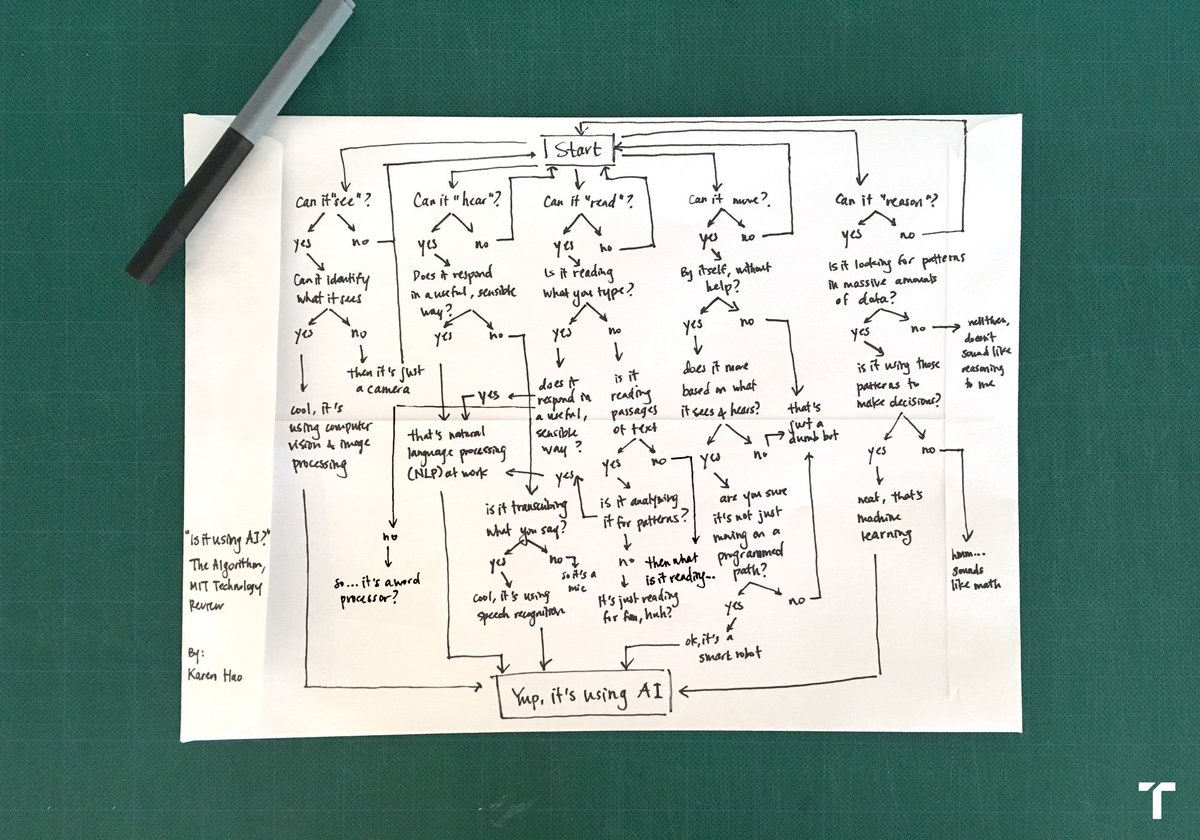 Start
Can it "see"?
yes
no
Can it identify
what it sees
yes
no
then it's just
a camera
cool, it's
using computer
vision & image
processing
Can it "hear"?
yes
no
Does it respond
in a useful, sensible
way?
yes
no
that's natural
language processing
(NLP) at work
is it transcribing
what you say?
yes
no
so it's a
mic
cool, it's using
speech recognition
Can it "read"?
yes
no
Is it reading
what you type?
yes
no
does it
respond in
a useful,
sensible
way?
yes
no
so... it's a word
processor?
is it
reading
passages
of text
yes
no
then what
is it reading..
is it analyzing
it for patterns?
yes
no
It's just reading
for fun, huh?
Can it move?
yes
no
By itself, without
help?
yes
no
does it move
based on what
it sees & hears?
yes
no
that's
just a
dumb bot
are you sure
it's not just
moving on a
programmed
path?
yes
no
ok, it's a
smart robot
Can it "reason"?
yes
no
Is it looking for patterns
in massive amounts
of data?
yes
no
well then,
doesn't
sound like
reasoning
to me
is it using those
patterns to
make decisions?
yes
no
neat, that's
machine
learning
hmm...
sounds
like math
Yup, it's using AI
"Is it using AI?"
The Algorithm,
MIT Technology
Review
By:
Karen Hao